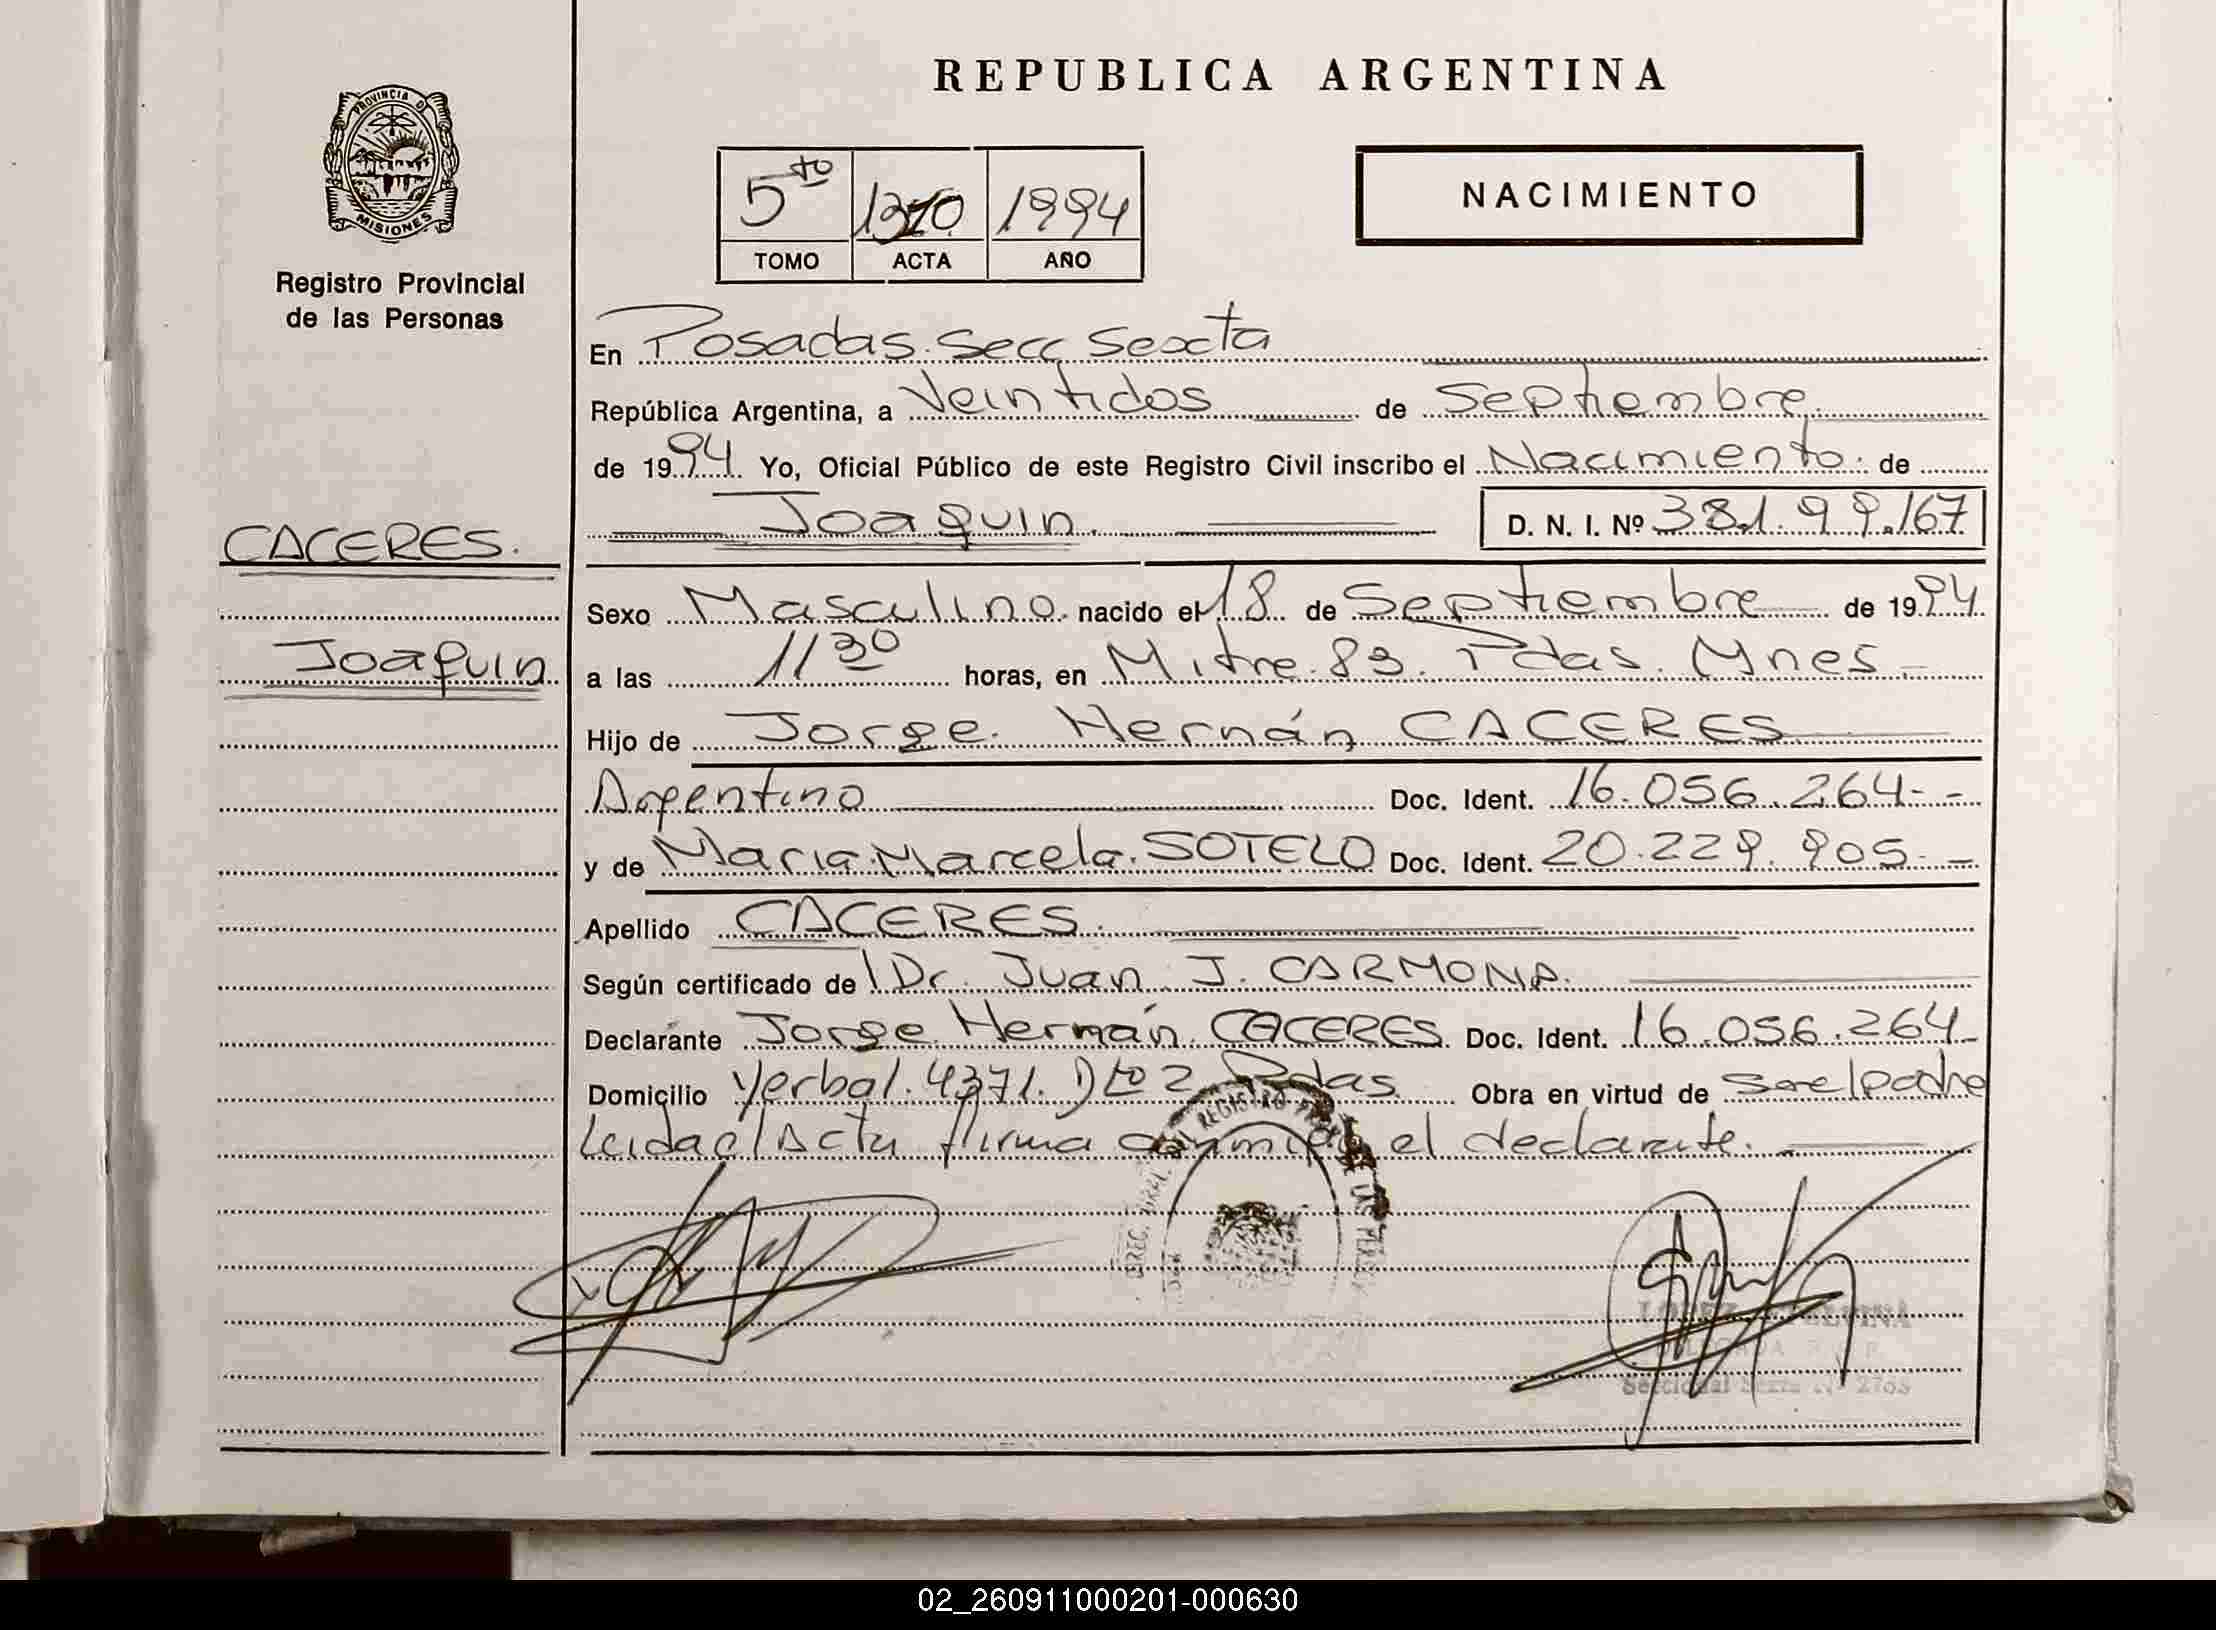 REPUBLICA ARGENTINA
PROVINCIA D
MISIONES
Registro Provincial
de las Personas
5to 1994
TOMO ACTA AÑO
NACIMIENTO
En Posadas. Secc Sexta
República Argentina, a Veintidos de Septiembre
de 1994. Yo, Oficial Público de este Registro Civil inscribo el Nacimiento de
Joaquin. D. N. I. Nº 38.199.167
CACERES.
Sexo Masculino nacido el 18 de Septiembre de 1994
Joaquin
a las 11 30 horas, en Mitre 83. Pdas. Mnes -
Hijo de Jorge Hernán CACERES
Argentino Doc. Ident. 16.056.264 - -
y de Maria Marcela SOTELO Doc. Ident. 20.229.905 - -
Apellido CACERES.
Según certificado de Dr. Juan J. CARMONA.
Declarante Jorge Hernán CACERES Doc. Ident. 16.056.264 -
Domicilio Yerbal 4371. Dto 2 Pdas Obra en virtud de ser el padre
Leida el Acta firma conmigo el declarante.
REGISTRO
DE LAS
LOPEZ
Seccional Sexta
02_260911000201-000630